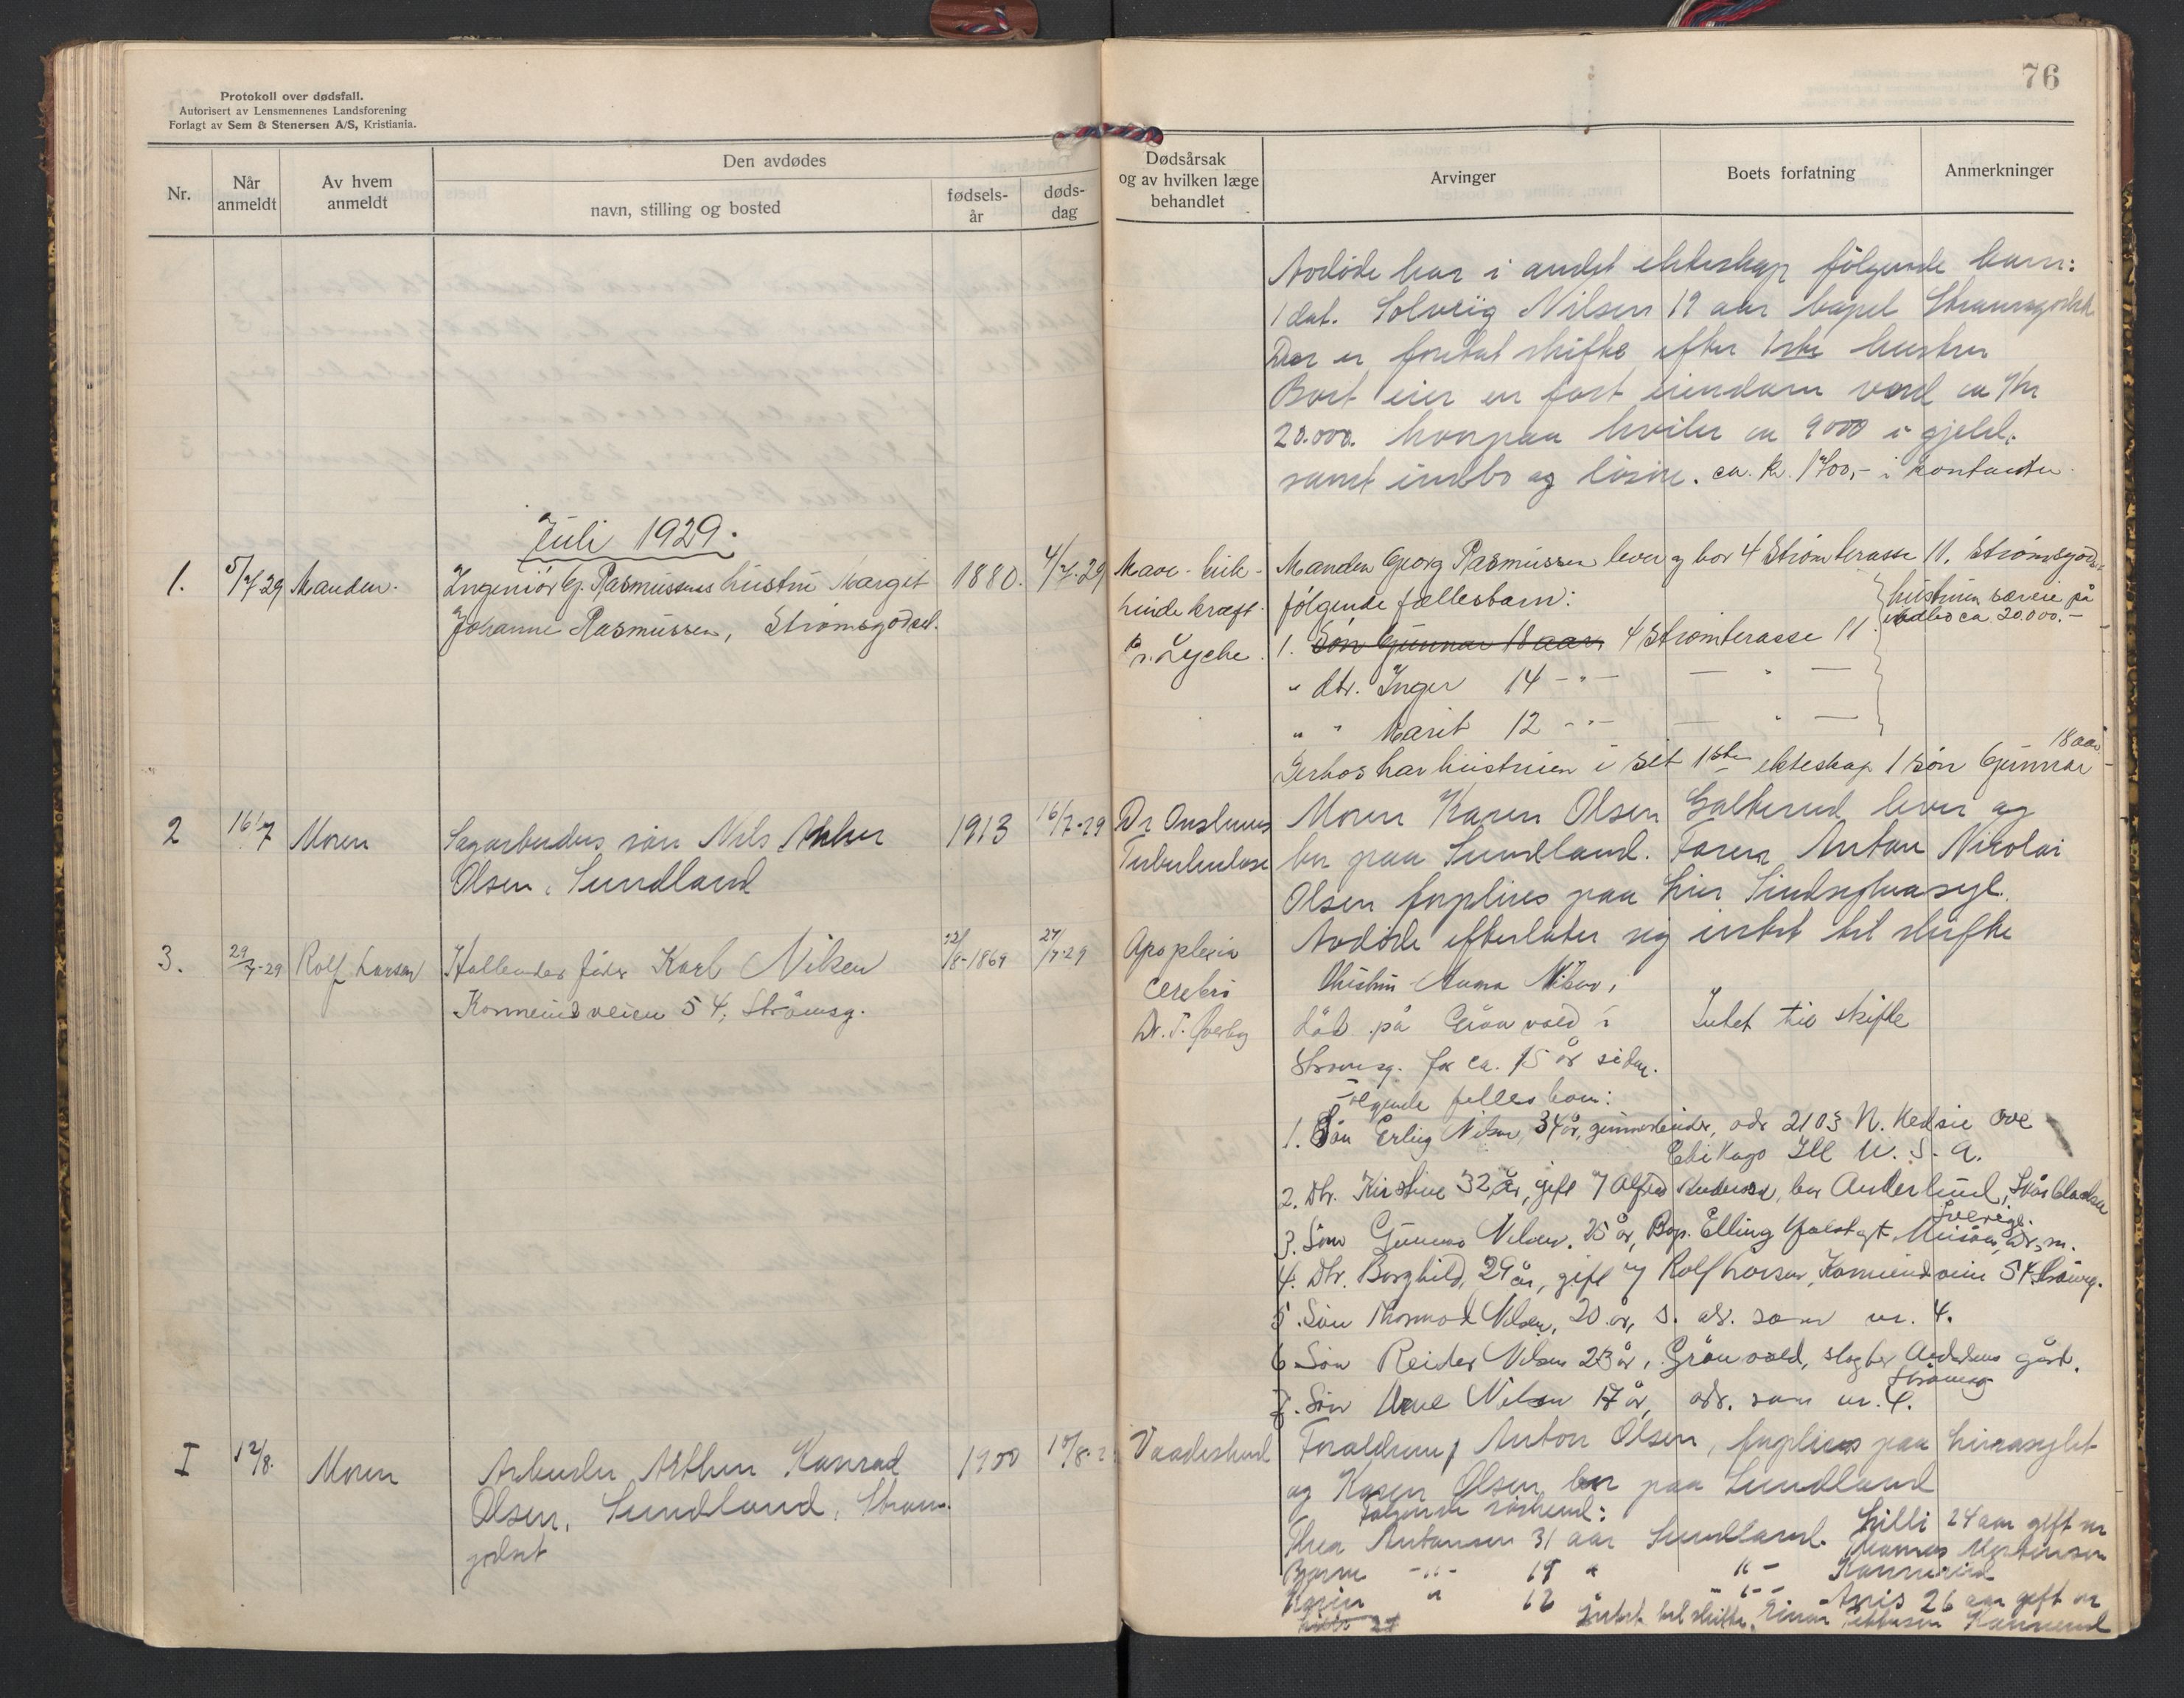 76
Protokoll over dødsfall.
Autorisert av Lensmennenes Landsforening
Forlagt av Sem & Stenersen A/S, Kristiania.
Nr.
Når anmeldt
Av hvem anmeldt
Den avdødes
navn, stilling og bosted
fødsels-år
døds-dag
Dødsårsak og av hvilken læge behandlet
Arvinger
Boets forfatning
Anmerkninger
Avdöde har i andet ekteskap fölgende barn:
1 dat. Solveig Nilsen 19 aar bopel Strømsgodset
Der er foretat skifte efter 1ste hustru
Boet eier en fast eiendom verd ca Kr
20.000. hvorpaa hviler ca 9000 i gjeld.
samt indbo og lösöre. ca. kr. 1700,- i kontanter.
Juli 1929.
1. 5/7 29 Manden. Ingeniør G. Rasmussens hustru Marget 1880. 4/7-29
Johanne Rasmussen, Strømsgodset.
Mave- buk-
hinde kræft.
Dr. Lyche.
Manden Georg Rasmussen lever og bor 4 Strøm terasse 11. Strømsgods.
følgende fællesbarn:
hustruen særeie på
indbo ca 20000.-
1. Søn Gunnar 18 aar 4 Strømterasse 11
" dtr. Inger 14 - " - — " —
" " Marit 12 - " - — " —
Derhos har hustruen i sit 1ste ekteskap 1 søn Gunnar 18 aar
2 16/7 Moren Sagarbeiders sön Nils Asker 1913 16/7-29
Olsen, Sundland
Dr Onslunds
Tuberkulose
Moren Karen Olsen Galterud lever og
bor paa Sundland. Faren Anton Nikolai
Olsen forpleies paa Lier Sindsykeasyl.
Avdöde efterlater sig intet til skifte
3. 29/7-29 Rolf Larsen Hollender feder Karl Nilsen 12/8-1869 27/7-29
Konnerudveien 54, Strömsg.
Apoplexia
cerebri
Dr. T. Överby
Hustru Anna Nilsen,
död på Grönvold i
Strömsg. for ca. 15 år siden.
Intet til skifte
Fölgende felles barn:
1. Sön Erling Nilsen, 34 år, adr 2103 N. Kedsie ave
Chikago Ill U. S. A.
2. Dtr. Kirstine 32 år, gift m/ Alfred Anderson, bor
Sverige.
3. Sön Gunnar Nilsen. 25 år, Bop. Elling
4. Dtr. Borghild, 29 år, gift m/ Rolf Larsen, Konnerudveien 54 Strömsg.
5. Sön Thormod Nilsen, 20 år, s. adr. som nr. 4.
6 Sön Reidar Nilsen 23 år, Grönvold, slagter Andersens gård,
Strömsg
7. Sön Arne Nilsen 17 år, adr. som nr. 4.
I 12/8. Moren Arbeider Arthur Konrad 1900 10/8-2
Olsen, Sundland, Stroms-
godset
Vaadeskud
Foreldrene, Anton Olsen, forpleies paa Lierasylet
og Karen Olsen bor paa Sundland
Følgende söskend:
Thea Antonsen 31 aar Sundland. Lilli 24 aar gift m
Thomas Mortensen
Bjarne -"- 18 " " - Konnerud
Karin " 12 " - " - Anis 26 aar gift m
Intet til skifte. Einar Pettersen Konnerud